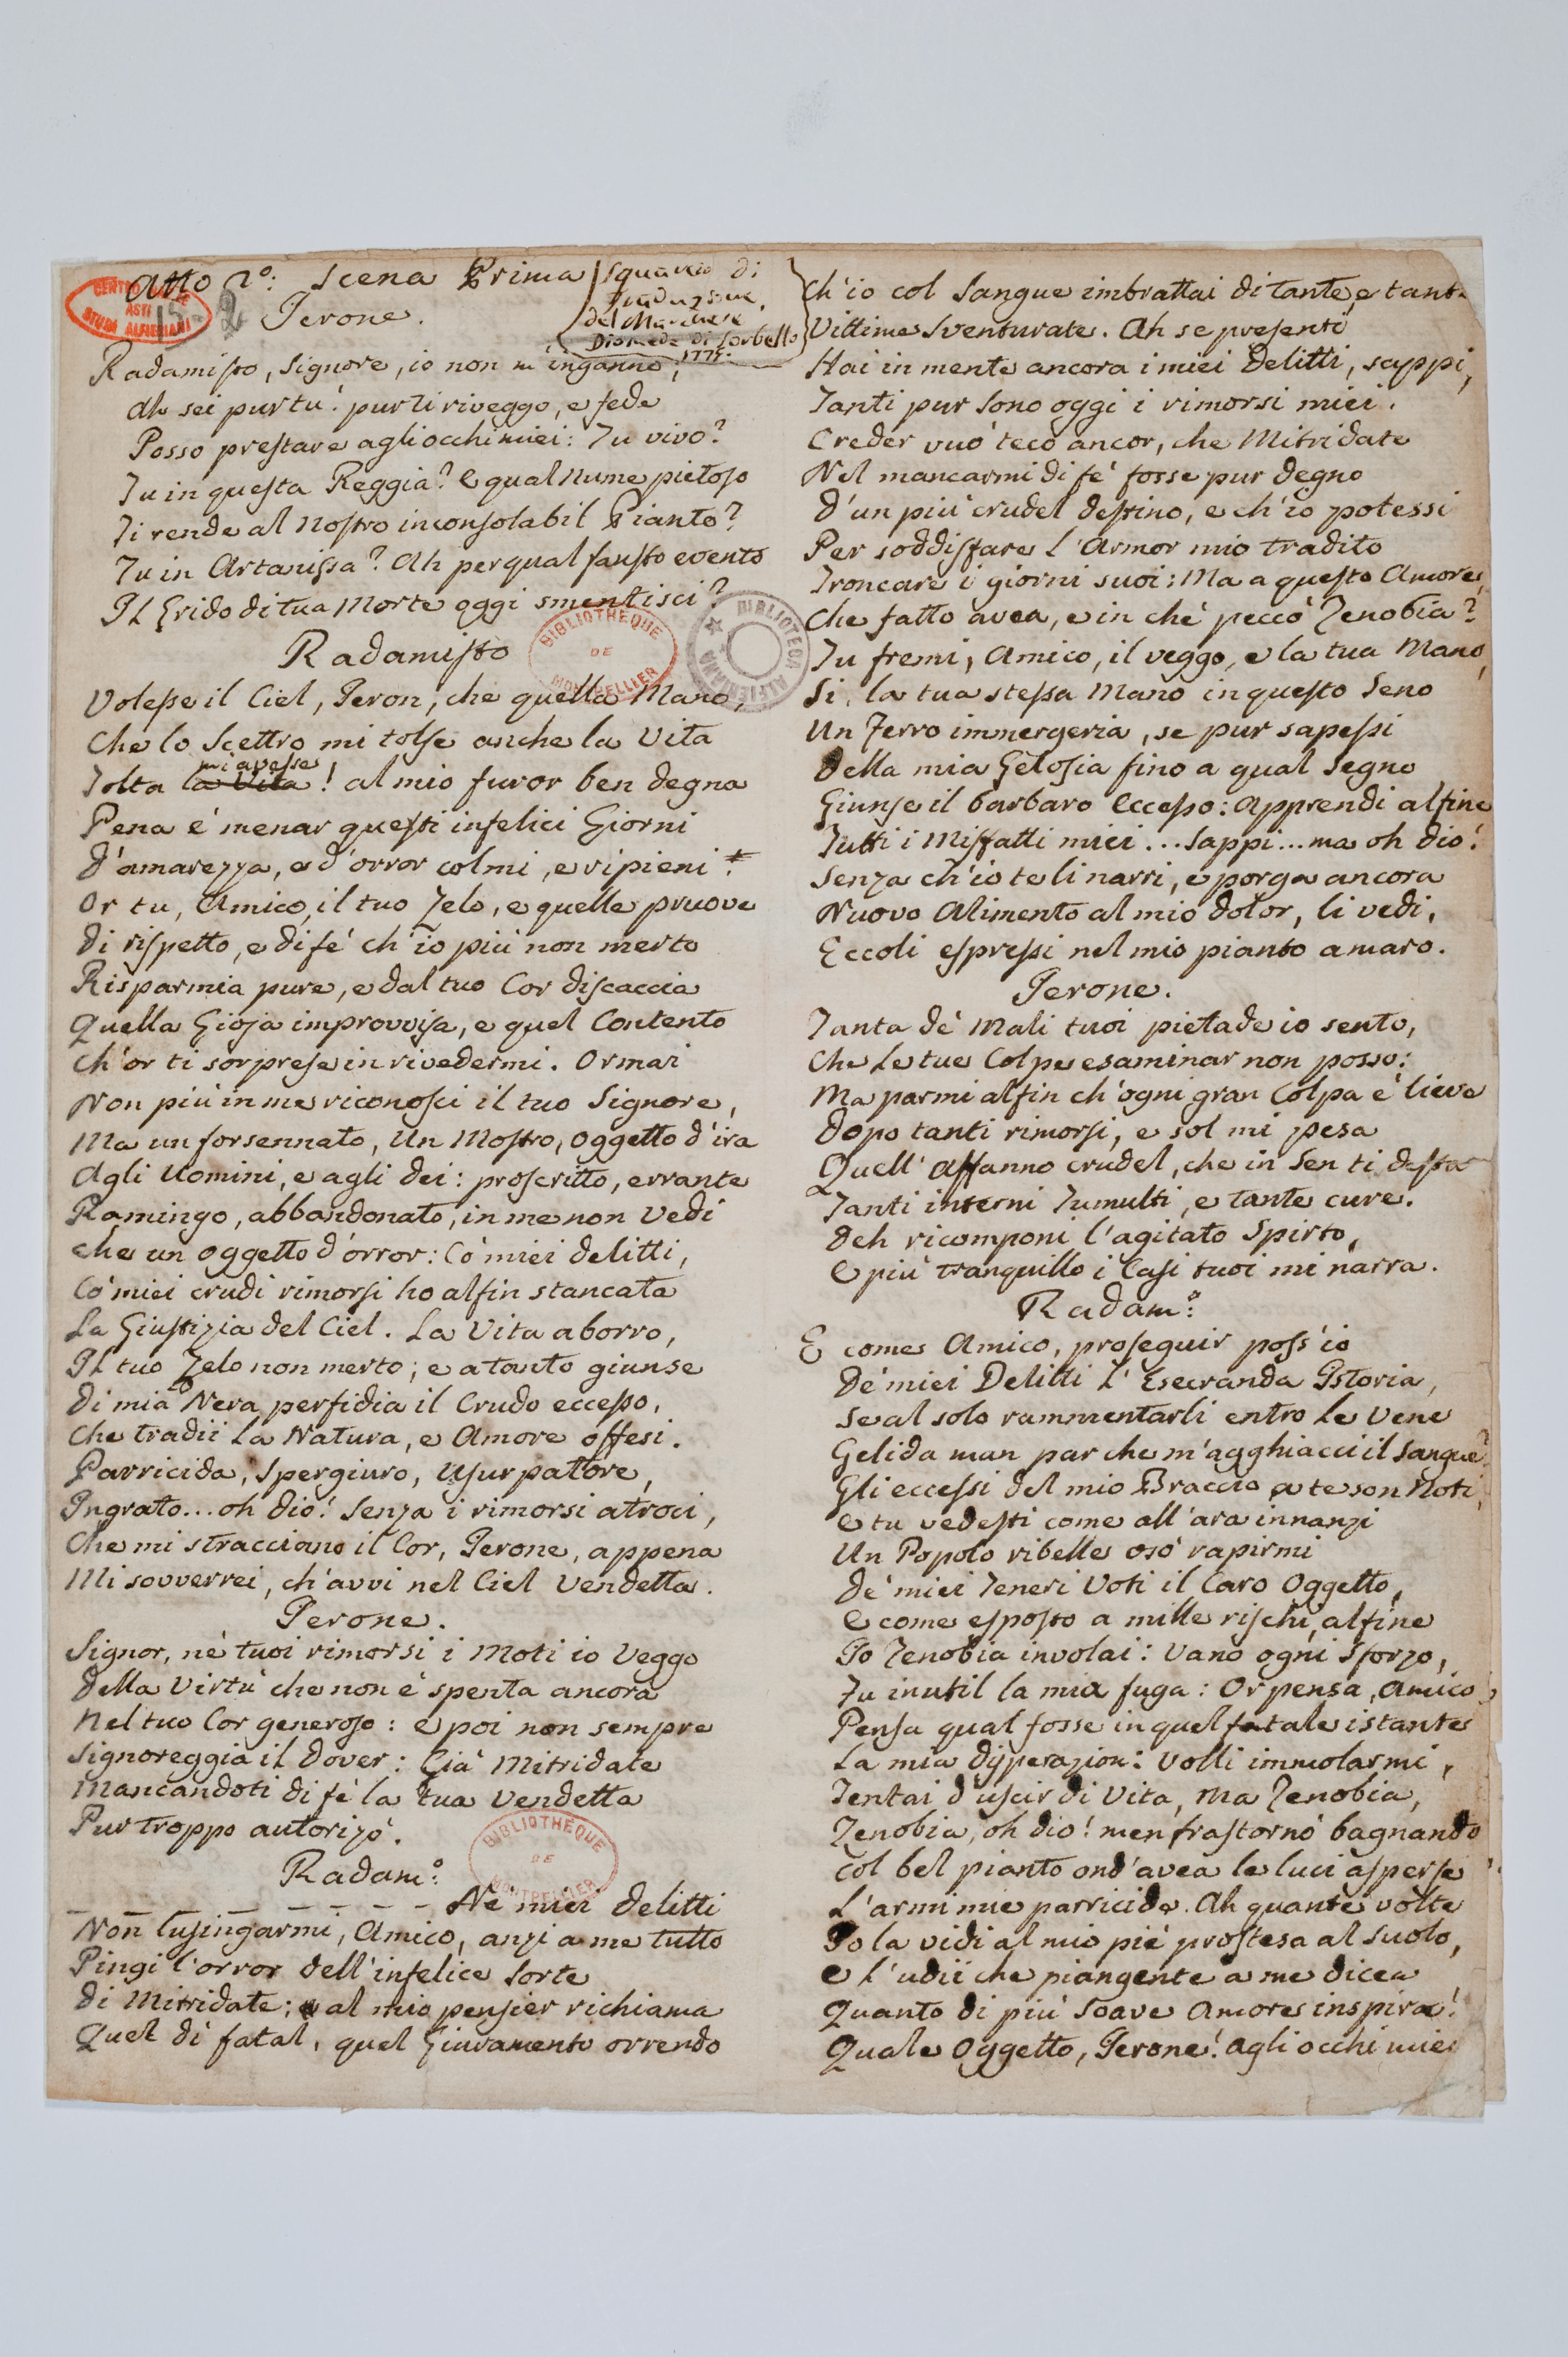 Atto 2º: Scena Prima
Squarcio di
Traduzione
del Marchese
Diomede di Sorbello
1775.
CENTRO
ASTI
STUDI ALFIERIANI
15
2
Jerone.
Radamisto, Signore, io non m'inganno;
Ah sei pur tu! pur ti riveggo, e fede
Posso prestare agli occhi miei: Tu vivo?
Tu in questa Reggia? e qual Nume pietoso
Ti rende al nostro inconsolabil Pianto?
Tu in Artanissa? Ah per qual fausto evento
Il Grido di tua Morte oggi smentisci?
BIBLIOTHEQUE
DE
MONTPELLIER
BIBLIOTECA ALFIERIANA
Radamisto
Volesse il Ciel, Jeron, che quella Mano,
Che lo Scettro mi tolse anche la Vita
mi avesse
Tolta la Vita! al mio furor ben degna
Pena é menar questi infelici Giorni
D'amarezza, e d'orror colmi, e ripieni!
Or tu, Amico, il tuo Zelo, e quelle pruove
Di rispetto, e di fé ch'io piú non merto
Risparmia pure, e dal tuo Cor discaccia
Quella Gioja improvvisa, e quel Contento
Ch'or ti sorprese in rivedermi. Ormai
Non piú in me riconosci il tuo Signore,
Ma un forsennato, Un Mostro, oggetto d'ira
Agli Uomini, e agli Dei: proscritto, errante
Ramingo, abbandonato, in me non Vedi
Che un oggetto d'orror: Co' miei delitti,
Co' miei crudi rimorsi ho alfin stancata
La Giustizia del Ciel. La Vita aborro,
Il tuo Zelo non merto; e a tanto giunse
Di mia Nera perfidia il Crudo eccesso,
Che tradii la Natura, e Amore offesi.
Parricida, Spergiuro, Usurpatore,
Ingrato... oh Dio! Senza i rimorsi atroci,
Che mi stracciano il Cor, Jerone, appena
Mi sovverrei, ch'avvi nel Ciel Vendetta.
Jerone.
Signor, ne' tuoi rimorsi i Moti io Veggo
Della Virtú che non é spenta ancora
Nel tuo Cor generoso: e poi non sempre
Signoreggia il Dover: Gia' Mitridate
Mancandoti di fé la tua Vendetta
Pur troppo autorizó.
BIBLIOTHEQUE
DE
MONTPELLIER
Radam.º:
- - - - - - - - Ne miei delitti
Non lusingarmi, Amico, anzi a me tutto
Pingi l'orror dell'infelice Sorte
Di Mitridate; al mio pensier richiama
Quel dí fatal, quel Giuramento orrendo
Ch'io col Sangue imbrattai di tante, e tante
Vittime Sventurate. Ah se presenti
Hai in mente ancora i miei Delitti, sappi,
Tanti pur Sono oggi i rimorsi miei.
Creder vuó teco ancor, che Mitridate
Nel mancarmi di fé fosse pur degno
D'un piú crudel destino, e ch'io potessi
Per soddisfare l'Amor mio tradito
Troncare i giorni suoi: Ma a questo Amore,
Che fatto avea, e in che peccó Zenobia?
Tu fremi, Amico, il veggo, e la tua Mano,
Si, la tua stessa Mano in questo Seno
Un Ferro immergeria, se pur sapessi
Della mia Gelosia fino a qual Segno
Giunse il barbaro eccesso: Apprendi alfine
Tutti i Misfatti miei... Sappi... ma oh Dio!
Senza ch'io te li narri, e porga ancora
Nuovo Alimento al mio dolor, li vedi,
Eccoli espressi nel mio pianto amaro.
Jerone.
Tanta de' Mali tuoi pietade io sento,
Che le tue Colpe esaminar non posso:
Ma parmi alfin ch'ogni gran Colpa é lieve
Dopo tanti rimorsi, e sol mi pesa
Quell'affanno crudel, che in Sen ti desta
Tanti interni Tumulti, e tante cure.
Deh ricomponi l'agitato Spirto,
E piú tranquillo i Casi tuoi mi narra.
Radam.º:
E come Amico, proseguir poss'io
De' miei Delitti l'Esecranda Istoria,
Se al solo rammentarli entro le Vene
Gelida man par che m'agghiacci il Sangue?
Gli eccessi del mio Braccio a te son Noti,
E tu vedesti come all'ara innanzi
Un Popolo ribelle osó rapirmi
De' miei Teneri Voti il Caro Oggetto,
E come esposto a mille rischi, alfine
Io Zenobia involai: Vano ogni Sforzo,
Fu inutil la mia fuga: Or pensa, Amico,
Pensa qual fosse in quel fatale istante
La mia disperazion: Volli immolarmi,
Tentai d'uscir di Vita, Ma Zenobia,
Zenobia, oh Dio! men frastornó bagnando
Col bel pianto ond'avea le luci asperse
L'armi mie parricide. Ah quante volte
Io la vidi al mio pié prostesa al Suolo,
E l'udii che piangente a me dicea
Quanto di piú Soave Amore inspira!
Quale Oggetto, Jerone! agli occhi miei